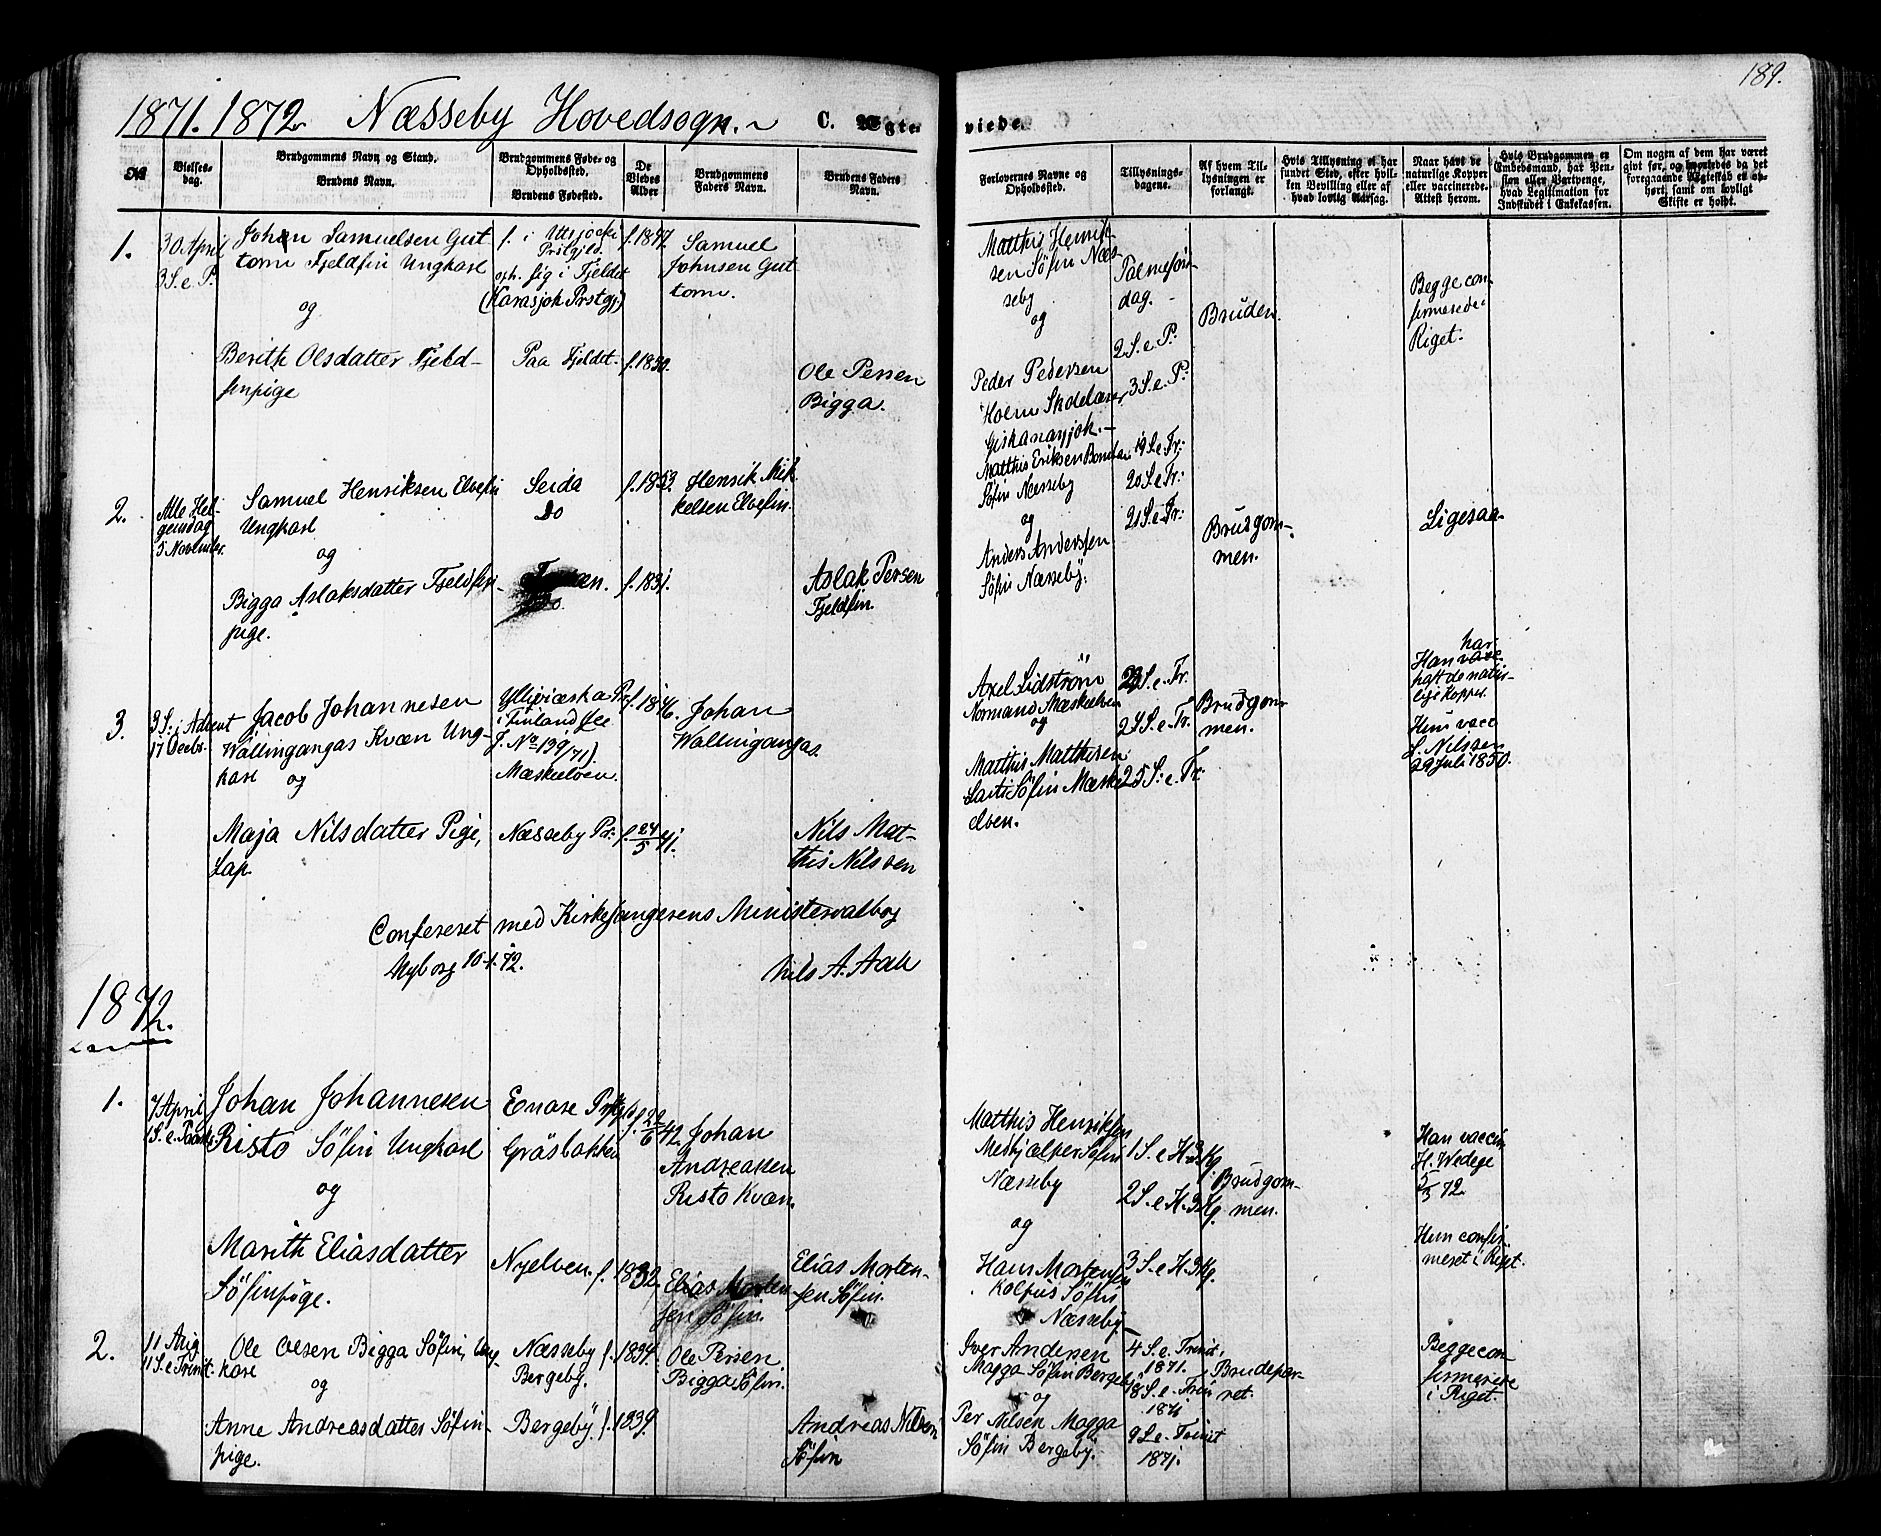 189.
1871. 1872 Næsseby Hovedsogn. ~ C. Ægteviede.
No
Vielses-
dag.
Brudgommens Navn og Stand.
Brudens Navn.
Brudgommens Føde- og
Opholdssted.
Brudens Fødested.
De
Viedes
Alder
Brudgommens
Faders Navn.
Brudens Faders
Navn.
Forlovernes Navne og
Opholdssted.
Tillysnings-
dagene.
Af hvem Til-
lysningen er
forlangt.
Hvis Tillysning ei har
fundet Sted, efter hvil-
ken Bevilling eller af
hvad lovlig Aarsag.
Naar havt de
naturlige Kopper
eller vaccinerede.
Attest herom.
Hvis Brudgommen er
Embedsmand, har Pen-
sion eller Vartpenge,
hvad Legitimation for
Indskudet i Enkekassen.
Om nogen af dem har været
givt før, og hvorledes da det
foregaaende Ægteskab er op-
hørt, samt om lovligt
Skifte er holdt.
1.
30 April
3 S. e. P.
Johan Samuelsen Gut
torm Fjeldfin Ungkarl
og
Berith Olsdatter Fjeld-
finpige
f. i Utsjocki
Prstgjld.
oph. sig i Fjeldet
(Karasjok Prstgj)
Paa Fjeldet.
f. 1847.
f. 1850.
Samuel
Johnsen Gut
torm.
Ole Persen
Bigga.
Matthis Henrik-
sen Söfin Næs-
seby
og
Peder Pedersen
Holm Skolelærer
Palmesön-
dag.
2 S. e. P.
3 S. e. P.
Bruden.
Begge con-
firmerede i
Riget.
2.
Alle Hel-
gensdag
5 November.
Samuel Henriksen Elvefin
Ungkarl
og
Bigga Aslaksdatter Fjeldfin-
pige.
Seida
Do
f. 1853.
f. 1851.
Henrik Mik
kelsen Elvefin.
Aslak Persen
Fjeldfin.
Matthis Eriksen
Söfin Næsseby
og
Anders Anderssen
Söfin Næsseby.
19 S. e. Tr:
20 S. e. Tr:
21 S. e. Tr:
Brudgom-
men.
Ligesaa
3.
3 S. i Advent
17 Decbr.
Jacob Johannesen
Wallingangas Kvæn Ung-
karl og
Maja Nilsdatter Pige,
Lap.
i Finland
J. No 139/71).
Mæskelven.
Næsseby Pr:
f. 1846.
f. 24/5 41.
Johan
Wallingangas.
Nils Mat-
this Nilssen
Axel Lidström
Normand Mæskelven
og
Matthis Mathisen
Laiti Söfin Mæsk
elven.
23 S. e. Tr.
24 S. e. Tr.
25 S. e. Tr:
Brudgom-
men.
har
Han
havt de natur-
lige Kopper
Hun vacc
S. Nilssen
29 Juli 1850.
Confereret med Kirkesangerens Ministerialbog
Nyborg 10-1.72.
Nils A. Aall
1872.
1.
7 April
1 S. e. Paaske
Johan Johannesen
Risto Söfin Ungkarl
og
Marith Eliasdatter
Söfinpige.
Enare Prstgld
Gräsbakken
Nyelven.
f. 22/6 42.
f. 1832.
Johan
Andreassen
Risto Kvæn.
Elias Morten
sen Söfin.
Elias Morten-
sen Söfin.
Matthis Henriksen
Medhjælper Söfin
Næsseby
og
Hans Mortensen
Kolpus Söfin
Næsseby.
1 S. e. H. 3 Kg
2 S. e. H. 3 Kg.
3 S. e. H. 3 Kg.
Brudgom-
men.
Han vaccin
H. Wedege
5/3 72.
Hun confir-
meret i Riget.
2.
11 Aug.
11 S. e Trinit.
Ole Olsen Bigga Söfin, Ung-
karl
og
Anne Andreasdatter Söfin-
pige.
Næsseby
Bergeby.
Bergeby.
f. 1834.
f. 1839.
Ole Persen
Bigga Söfin.
Andreas Nilsen
Söfin
Iver Andersen
Magga Söfin Bergeby
og
Per Nilsen Magga
Söfin Bergeby.
4 S. e. Trinit.
1871.
8 S. e. Trin
1871
9 S. e. Trinit
1871.
Brudepar-
ret.
Begge con
firmerede
i Riget.